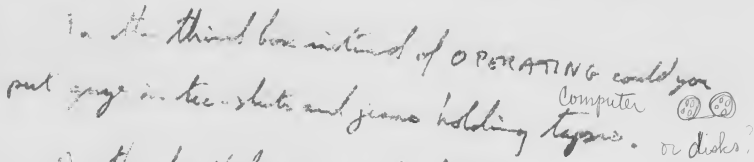 In the third box instead of OPERATING could you
put guys in tee-shirts and jeans holding computer tapes. or disks?